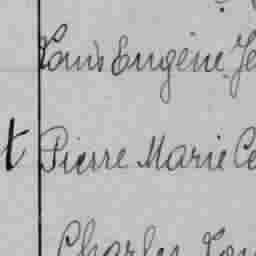 Louis Eugène Je
t Pierre Marie Ce
Charles Lou